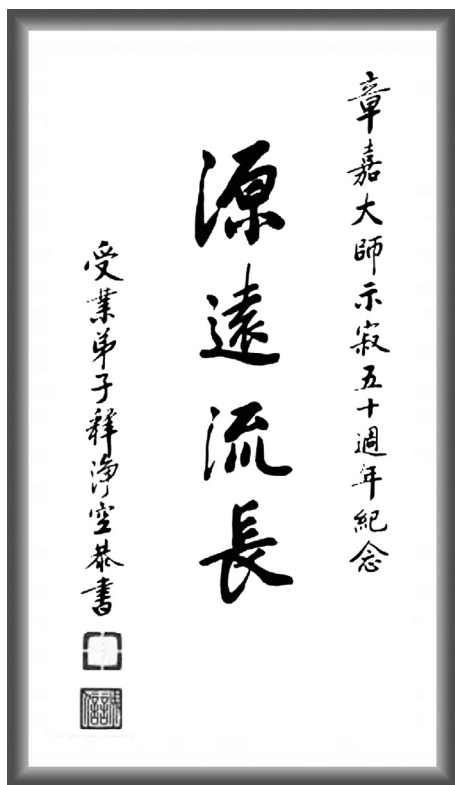 章嘉大師示寂五十週年紀念
源遠流長
受業弟子釋淨空恭書